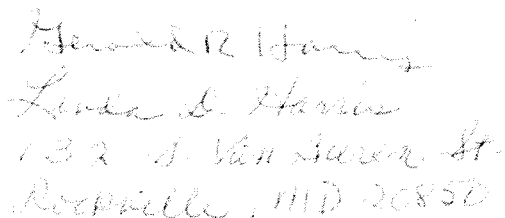 Gerald R Harris
Linda D. Harris
132 S. Van Buren St.
Rockville, MD 20850